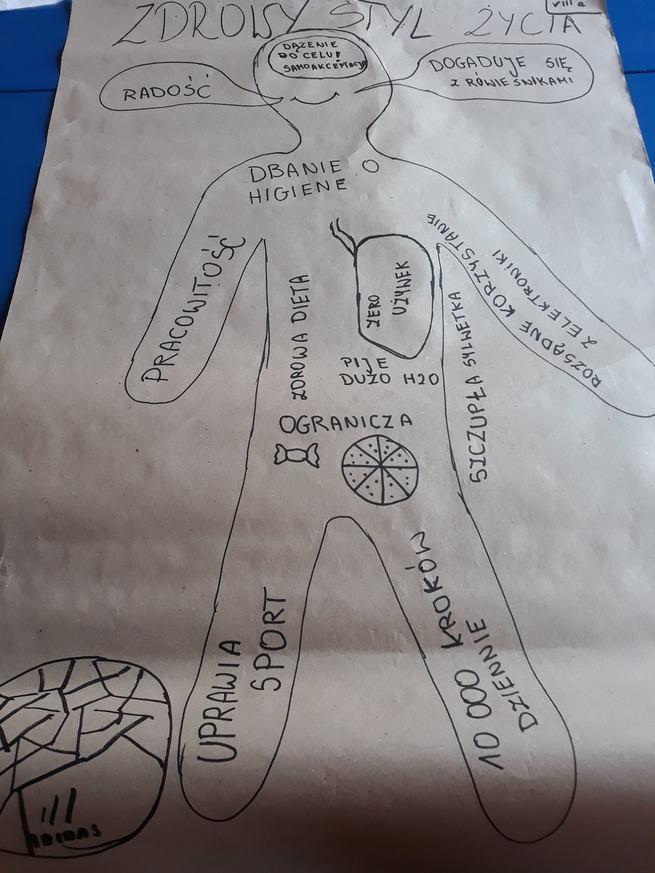 ZDROWY STYL ŻYCIA
VIII a
DĄŻENIE
DO CELU!
SAMOAKCEPTACJA
RADOŚĆ
DOGADUJE SIĘ
Z RÓWIEŚNIKAMI
DBANIE O
HIGIENE
PRACOWITOŚĆ
ROZSĄDNE KORZYSTANIE
Z ELEKTRONIKI
ZDROWA DIETA
ZERO
UŻYWEK
SZCZUPŁA SYLWETKA
PIJE
DUŻO H2O
OGRANICZA
UPRAWIA
SPORT
10 000 KROKÓW
DZIENNIE
ADIDAS